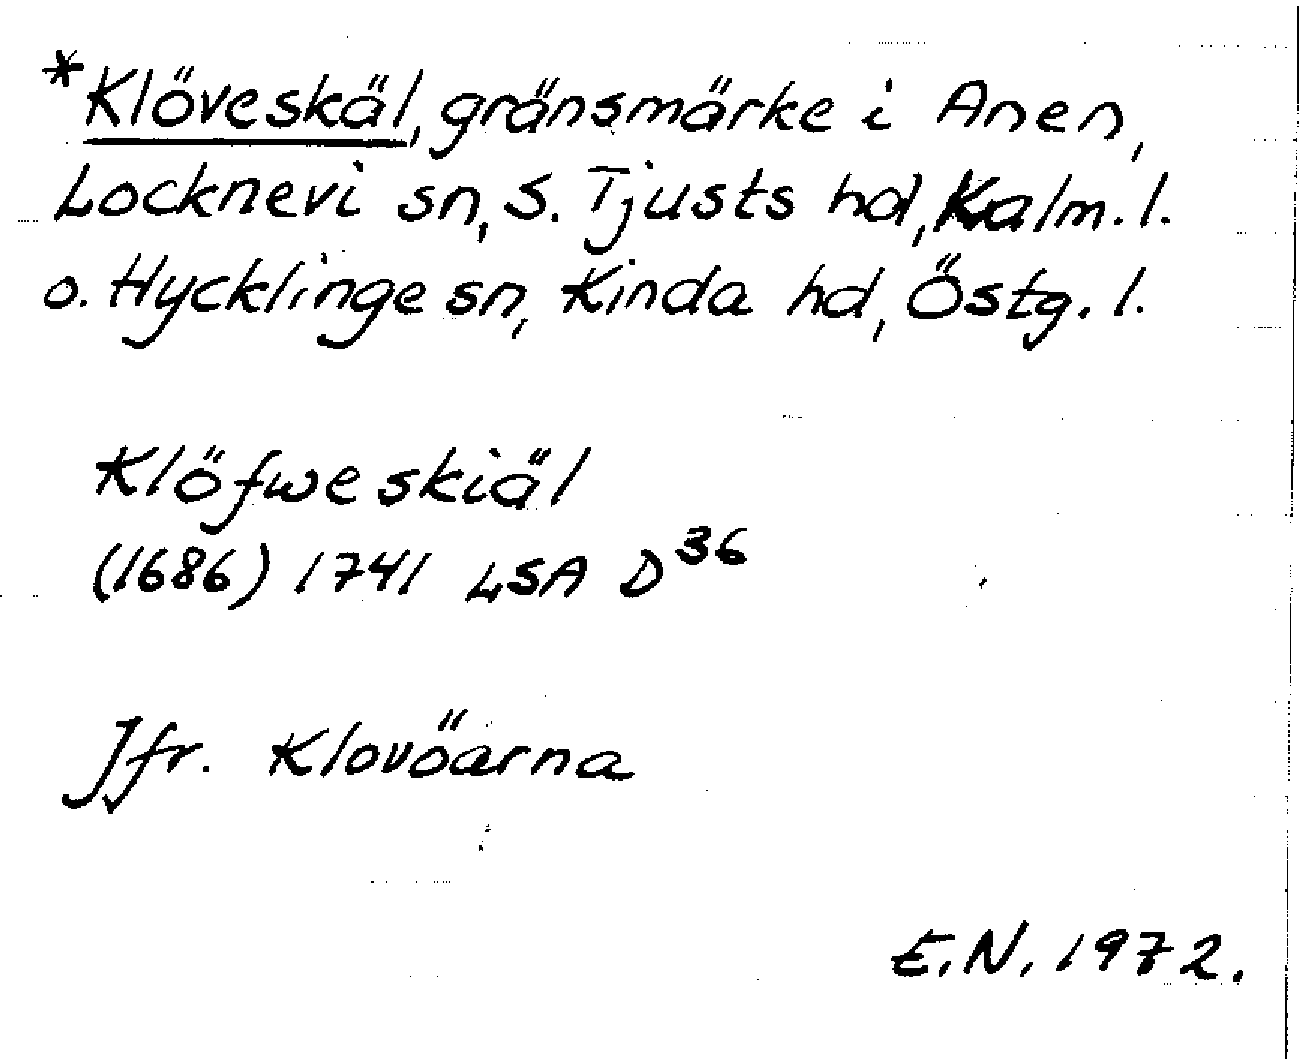 *Klöveskäl, gränsmärke i Anen,
Locknevi sn, S. Tjusts hd, Kalm. l.
o. Hycklinge sn, Kinda hd, Östg. l.
Klöfwe skiäl
(1686) 1741 LSA D36
Jfr. Klovöarna
E.N. 1972.